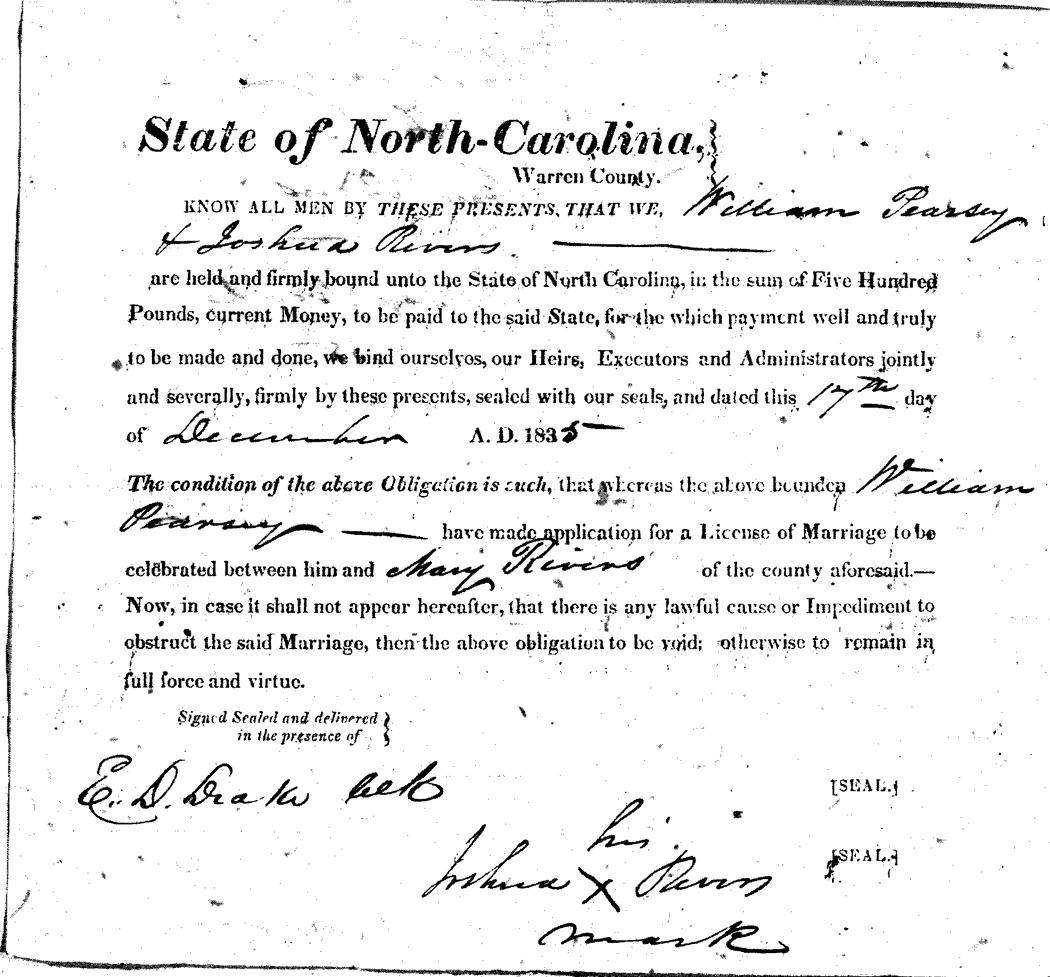 State of North-Carolina,
Warren County.
KNOW ALL MEN BY THESE PRESENTS, THAT WE, William Pearsey
& Joshua Rivers
are held and firmly bound unto the State of North Carolina, in the sum of Five Hundred
Pounds, current Money, to be paid to the said State, for the which payment well and truly
to be made and done, we bind ourselves, our Heirs, Executors and Administrators jointly
and severally, firmly by these presents, sealed with our seals, and dated this 17th day
of December A. D. 1835
The condition of the above Obligation is such, that whereas the above bounden William
Pearsey have made application for a License of Marriage to be
celebrated between him and Mary Rivers of the county aforesaid.—
Now, in case it shall not appear hereafter, that there is any lawful cause or Impediment to
obstruct the said Marriage, then the above obligation to be void; otherwise to remain in
full force and virtue.
Signed Sealed and delivered
in the presence of
E. D. Drake Clk
[SEAL.]
his
[SEAL.]
Joshua X Rivers
mark